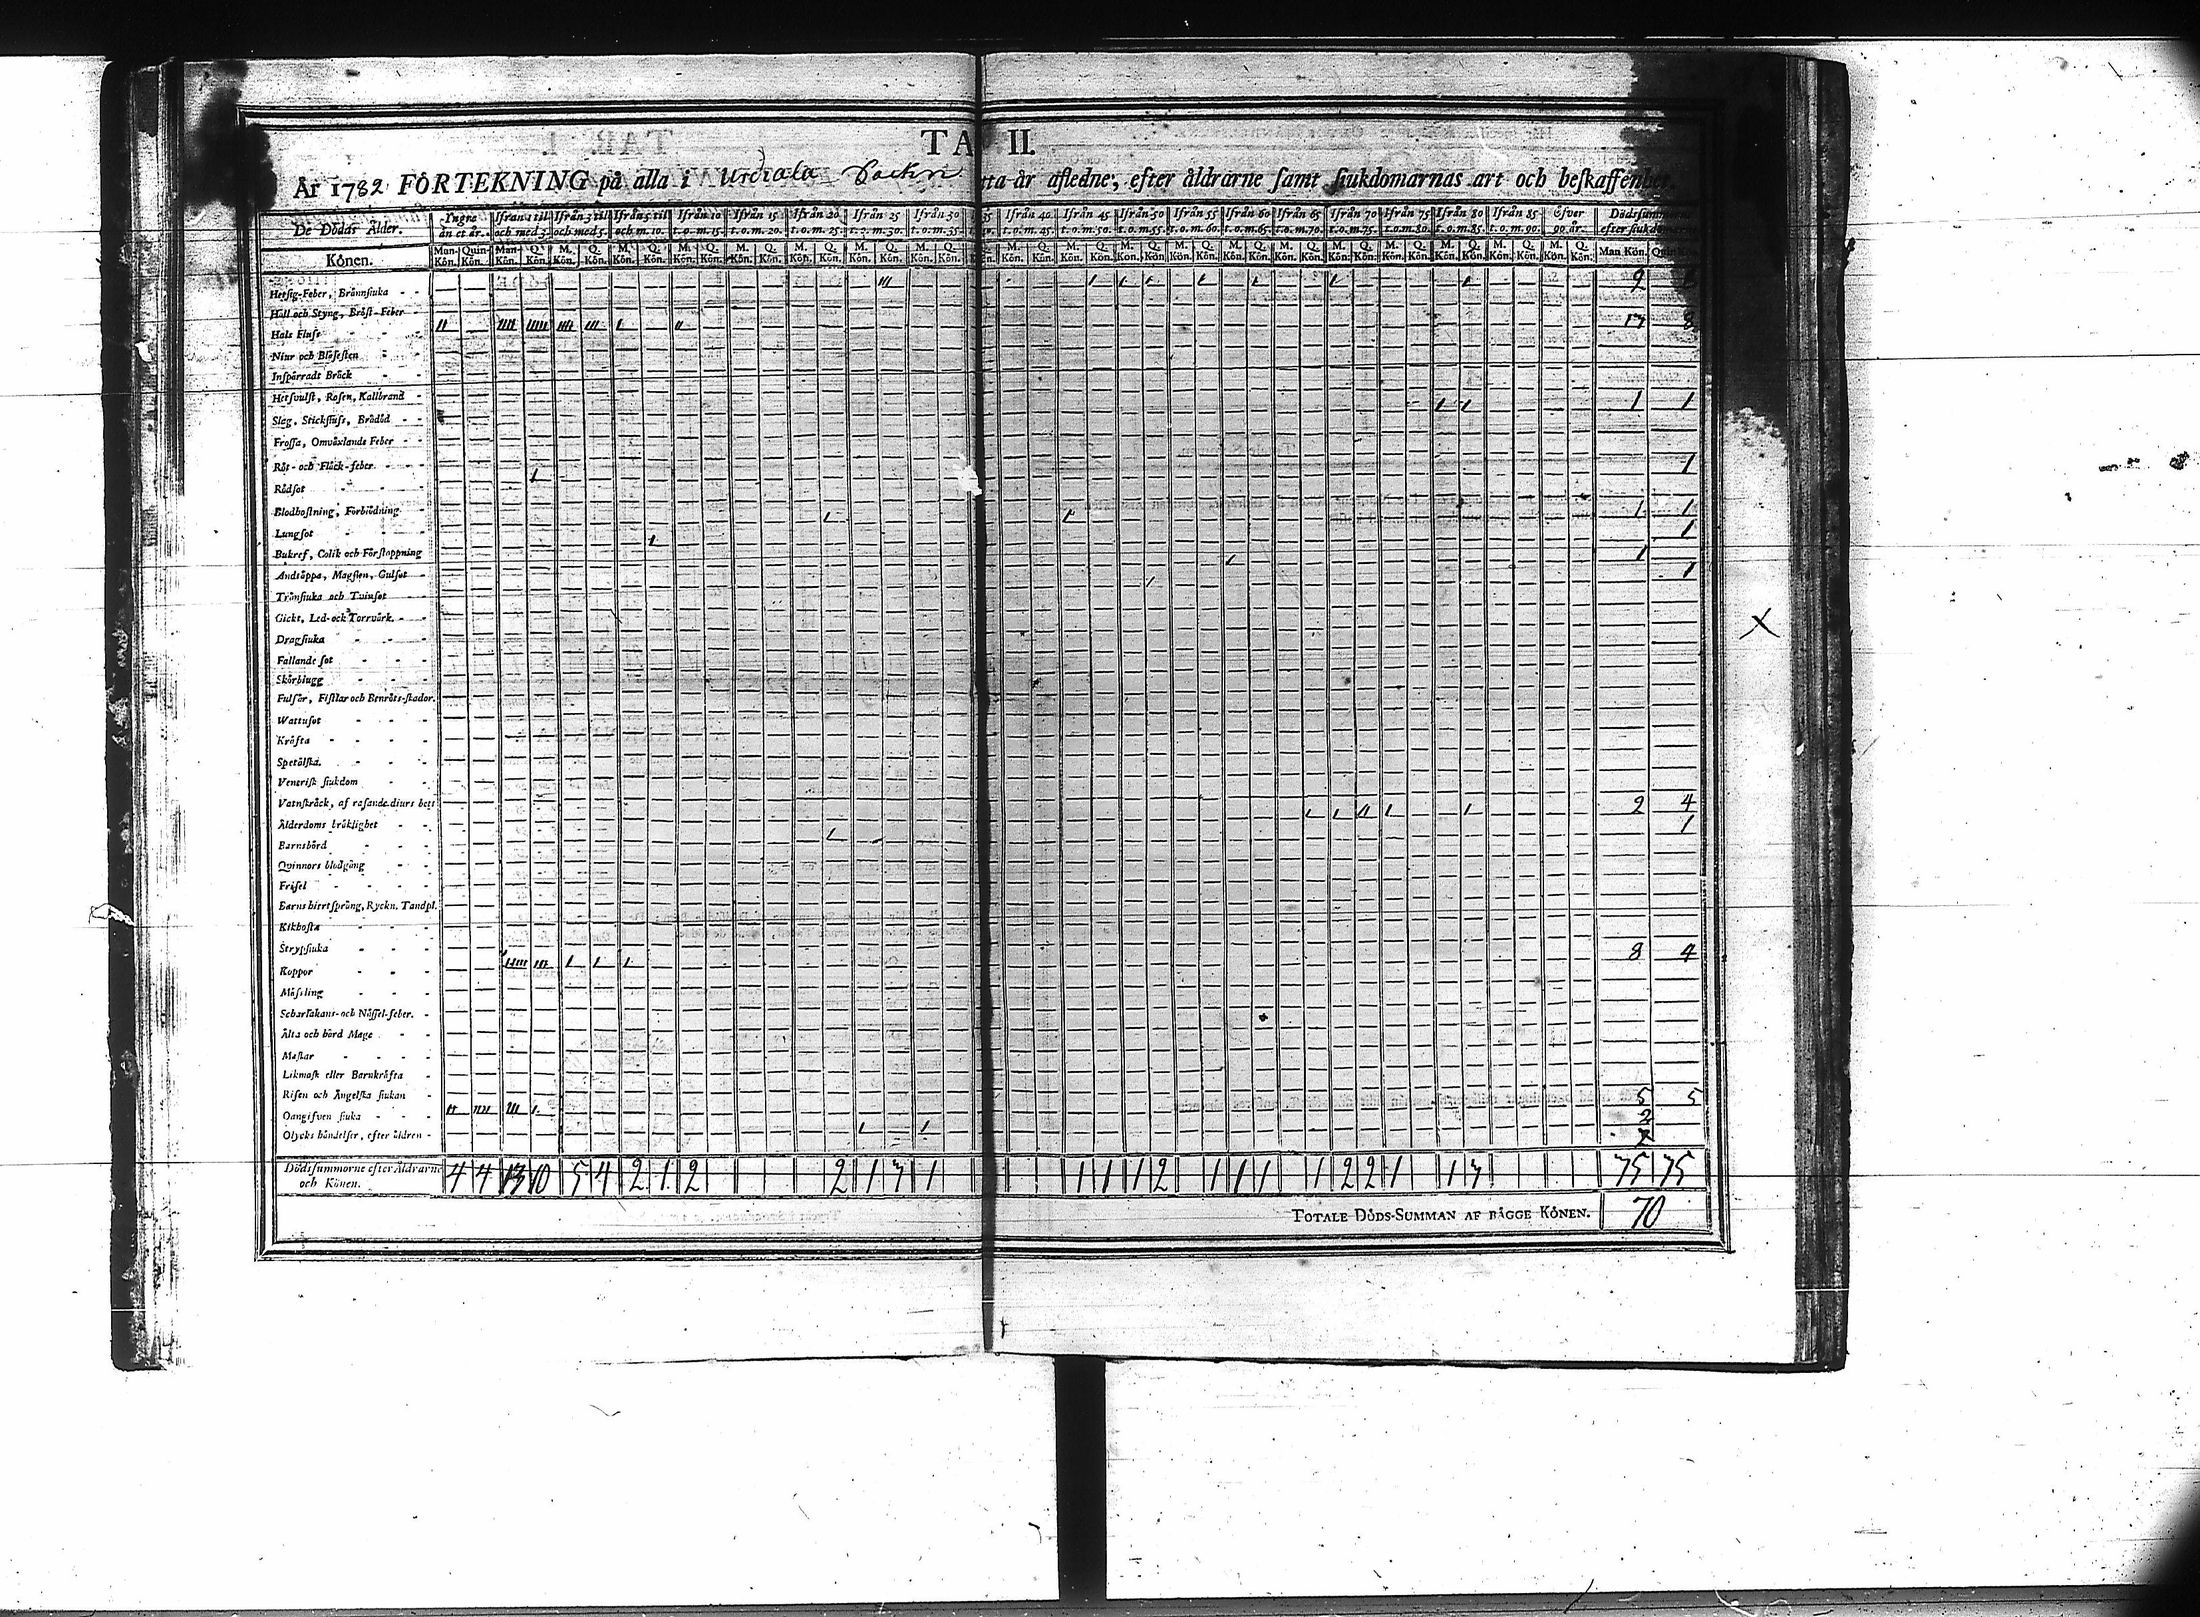 TA II.
År 1782 FÖRTEKNING på alla i Urdiala Sockn tta år afledne, efter åldrarne samt siukdomarnas art och beskaffenhet.
De Dödas Ålder. Yngre än et år. Ifrån 1 til och med 3. Ifrån 3 til och med 5. Ifrån 5 til och m. 10. Ifrån 10 t.o.m. 15. Ifrån 15 t.o.m. 20. Ifrån 20 t.o.m. 25. Ifrån 25 t.o.m. 30. Ifrån 30 t.o.m. 35 35 Ifrån 40 t.o.m. 45. Ifrån 45 t.o.m. 50. Ifrån 50 t.o.m. 55. Ifrån 55 t.o.m. 60. Ifrån 60 t.o.m. 65. Ifrån 65 t.o.m. 70. Ifrån 70 t.o.m. 75. Ifrån 75 t.o.m. 80. Ifrån 80 t.o.m. 85. Ifrån 85 t.o.m. 90. Öfver 90 år. Dödssummorne efter siukdomarne
Könen. Man-Kön. Quin-Kön. Man-Kön. Q. Kön. M. Kön. Q. Kön. M. Kön. Q. Kön. M. Kön. Q. Kön. M. Kön. Q. Kön. M. Kön. Q. Kön. M. Kön. Q. Kön. M. Kön. Q. Kön. M. Kön. Q. Kön. M. Kön. Q. Kön. M. Kön. Q. Kön. M. Kön. Q. Kön. M. Kön. Q. Kön. M. Kön. Q. Kön. M. Kön. Q. Kön. M. Kön. Q. Kön. M. Kön. Q. Kön. M. Kön. Q. Kön. M. Kön. Q. Kön. Man Kön. Quin Kön.
Hetsig-Feber, Brännsiuka III 1 1 1 1 1 1 1 9
Håll och Styng, Bröst-Feber
Hals Fluss II IIII IIIII IIII III 1 II 17 8
Niur och Blåsesten
Inspärradt Bråck
Hetsvulst, Rosen, Kallbrand
Slag, Stickfluss, Brådöd 1 1 1 1
Frossa, Omväxlande Feber
Röt- och Fläck-feber
Rödsot 1 1
Blodhostning, Förblödning
Lungsot 1 1 1 1
Bukref, Colik och Förstoppning 1 1
Andtäppa, Magsten, Gulsot 1 1
Trånsiuka och Tvinsot 1 1
Gickt, Led- och Torrvärk
Dragsiuka
Fallande sot
Skörbiugg
Fulsår, Fistlar och Benröts-skador.
Wattusot
Kräfta
Spetälska.
Venerisk siukdom
Vatnskräck, af rasande diurs bett
Ålderdoms bräklighet 1 1 II 1 1 2 4
Barnsbörd 1 1
Qvinnors blodgång
Frisel
Barns hiertsprång, Ryckn. Tandpl.
Kikhosta
Strypsiuka
Koppor IIIII III 1 1 1 8 4
Mässling
Scharlakans- och Nässel-feber.
Älta och hård Mage
Maskar
Likmask eller Barnkräfta
Risen och Ängelska siukan
Oangifven siuka II IIII III 1 5 5
Olycks händelser, efter åldren 1 1 2
Dödssummorne efter Åldrarne och Könen. 4 4 13 10 5 4 2 1 2 2 1 3 1 1 1 1 2 1 1 1 1 2 2 1 1 3 35 35
TOTALE DÖDS-SUMMAN AF BÄGGE KÖNEN. 70
X